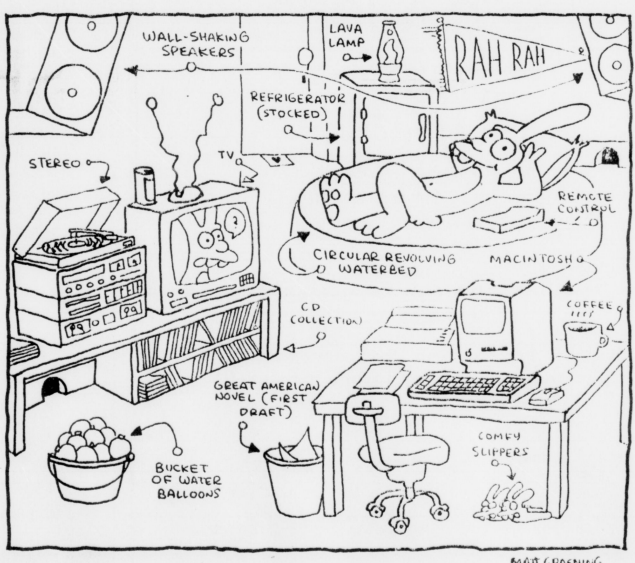 WALL-SHAKING
SPEAKERS
LAVA
LAMP
RAH RAH
REFRIGERATOR
(STOCKED)
STEREO
TV
?
REMOTE
CONTROL
CIRCULAR REVOLVING
WATERBED
MACINTOSH
COFFEE
CD
COLLECTION
GREAT AMERICAN
NOVEL (FIRST
DRAFT)
COMFY
SLIPPERS
BUCKET
OF WATER
BALLOONS
MATT GROENING